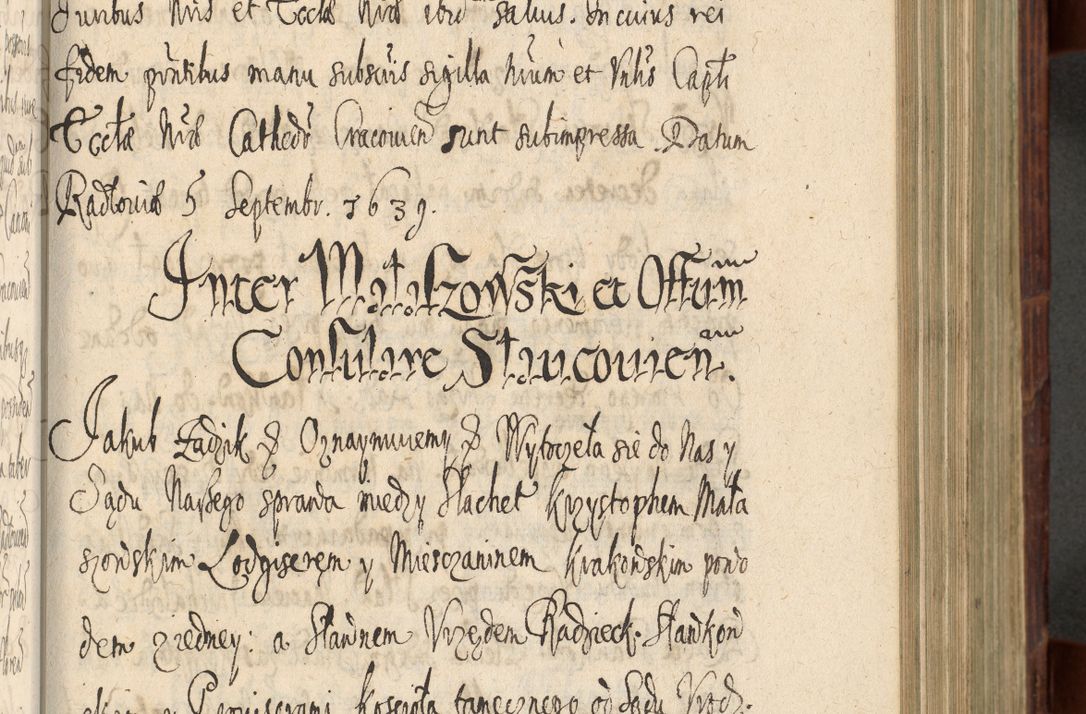 Juribus Nris et Eccłæ Nræ ibid salvis. In cuius rei
fidem pñtibus manu subscris sigilla Nrum et Vnlis Capti
Eccłæ Nræ Cathedr Cracovien sunt subimpressa. Datum
Radłoviæ 5 Septembr. 1639.
Inter Małaszowski et Offium
Consulare Slavcovien.
Jakub Zadzik & Oznaymuiemy & Wytoczeła sie do Nas y
Sądu Naszego sprawa miedzy Slachet Krzysztophem Mała
szowskim Lodgiserem y Miesczaninem Krakowskim powo
dem z iedney: a Sławnem Vrzędem Radzieck. Sławkow
skim y Prowisorami kościoła tamecznego od Sądu Vrod.